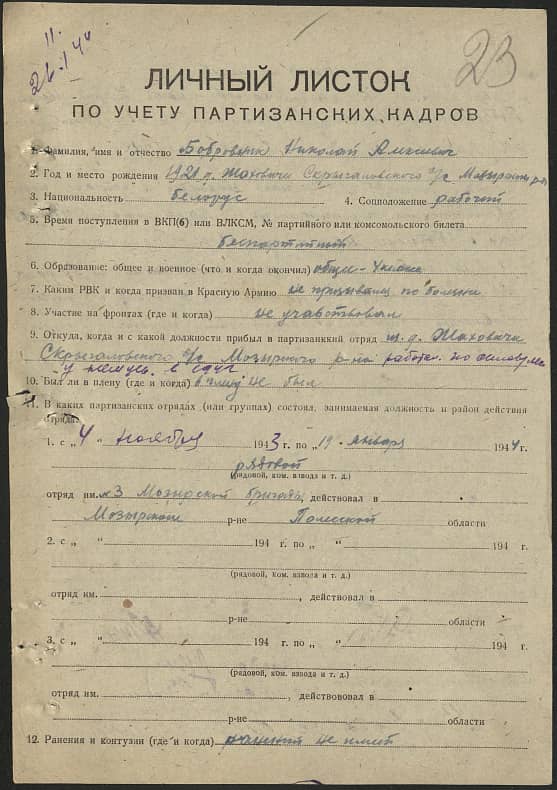 11.
26.1 44
23
ЛИЧНЫЙ ЛИСТОК
ПО УЧЕТУ ПАРТИЗАНСКИХ КАДРОВ
1. Фамилия, имя и отчество Николай
2. Год и место рождения 1921 д. Жаховичи Скрыгаловского с/с Мозырского р-на
3. Национальность белорус 4. Соцположение рабочий
5. Время поступления в ВКП(б) или ВЛКСМ, № партийного или комсомольского билета
беспартийный
6. Образование: общее и военное (что и когда окончил) общее - 4 класса
7. Каким РВК и когда призван в Красную Армию не призывался по болезни
8. Участие на фронтах (где и когда) не участвовал
9. Откуда, когда и с какой должности прибыл в партизанский отряд из д. Жаховичи
Скрыгаловского с/с Мозырского р-на работал по
у немцев в
10. Был ли в плену (где и когда) в плену не был
11. В каких партизанских отрядах (или группах) состоял, занимаемая должность и район действия
отряда:
1. с „4 ноября 1943 г. по „19 января 1944 г.
рядовой
(рядовой, ком. взвода и т. д.)
отряд им. №3 Мозырской бригады, действовал в
Мозырском р-не Полесской области
2. с „ “ 194 г. по „ “ 194 г.
(рядовой, ком. взвода и т. д.)
отряд им. , действовал в
р-не области
3. с „ “ 194 г. по „ “ 194 г.
(рядовой, ком. взвода и т. д.)
отряд им. , действововал в
р-не области
12. Ранения и контузии (где и когда) ранений не имел